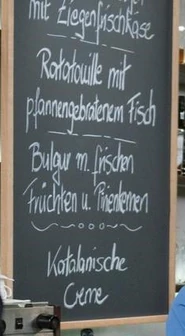 mit Ziegenfrischkäse
Ratatouille mit
pfannengebratenem Fisch
Bulgur m. frischen
Früchten u. Pinienkernen
Katalanische
Creme